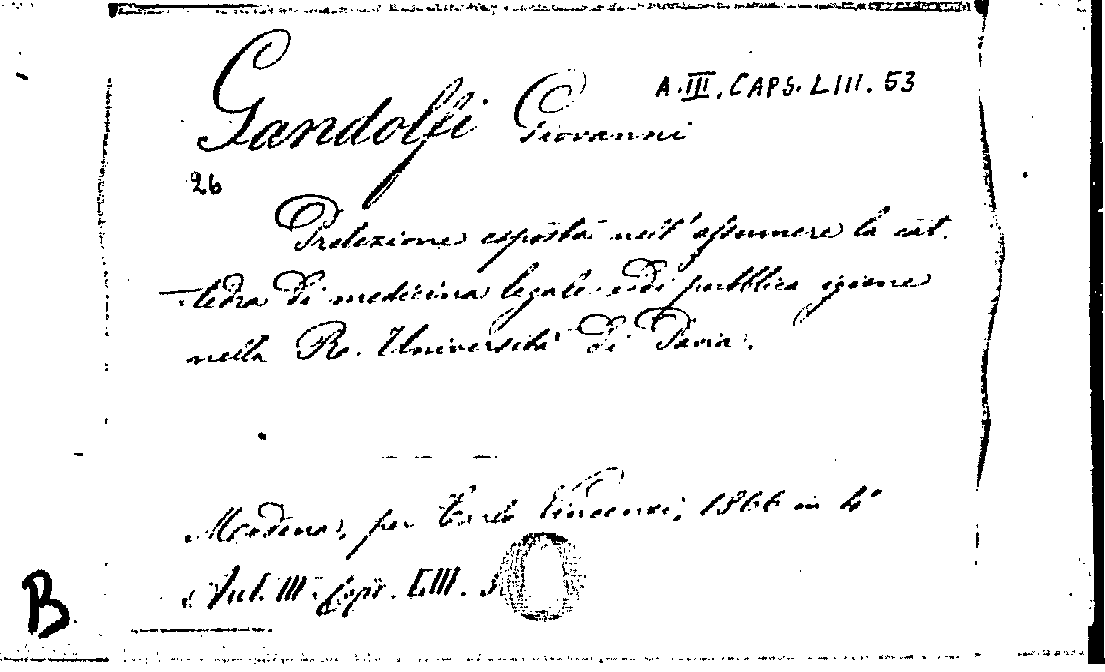 A.III.CAPS.LIII.53
Gandolfi Giovanni
26
Prelezione esposta nell'assumere la cat-
tedra di medicina legale e di pubblica igiene
nella Ra. Università di Pavia.
Modena, per Carlo Vincenzi, 1866 in 4°
Aul. III. Caps. LIII.
B